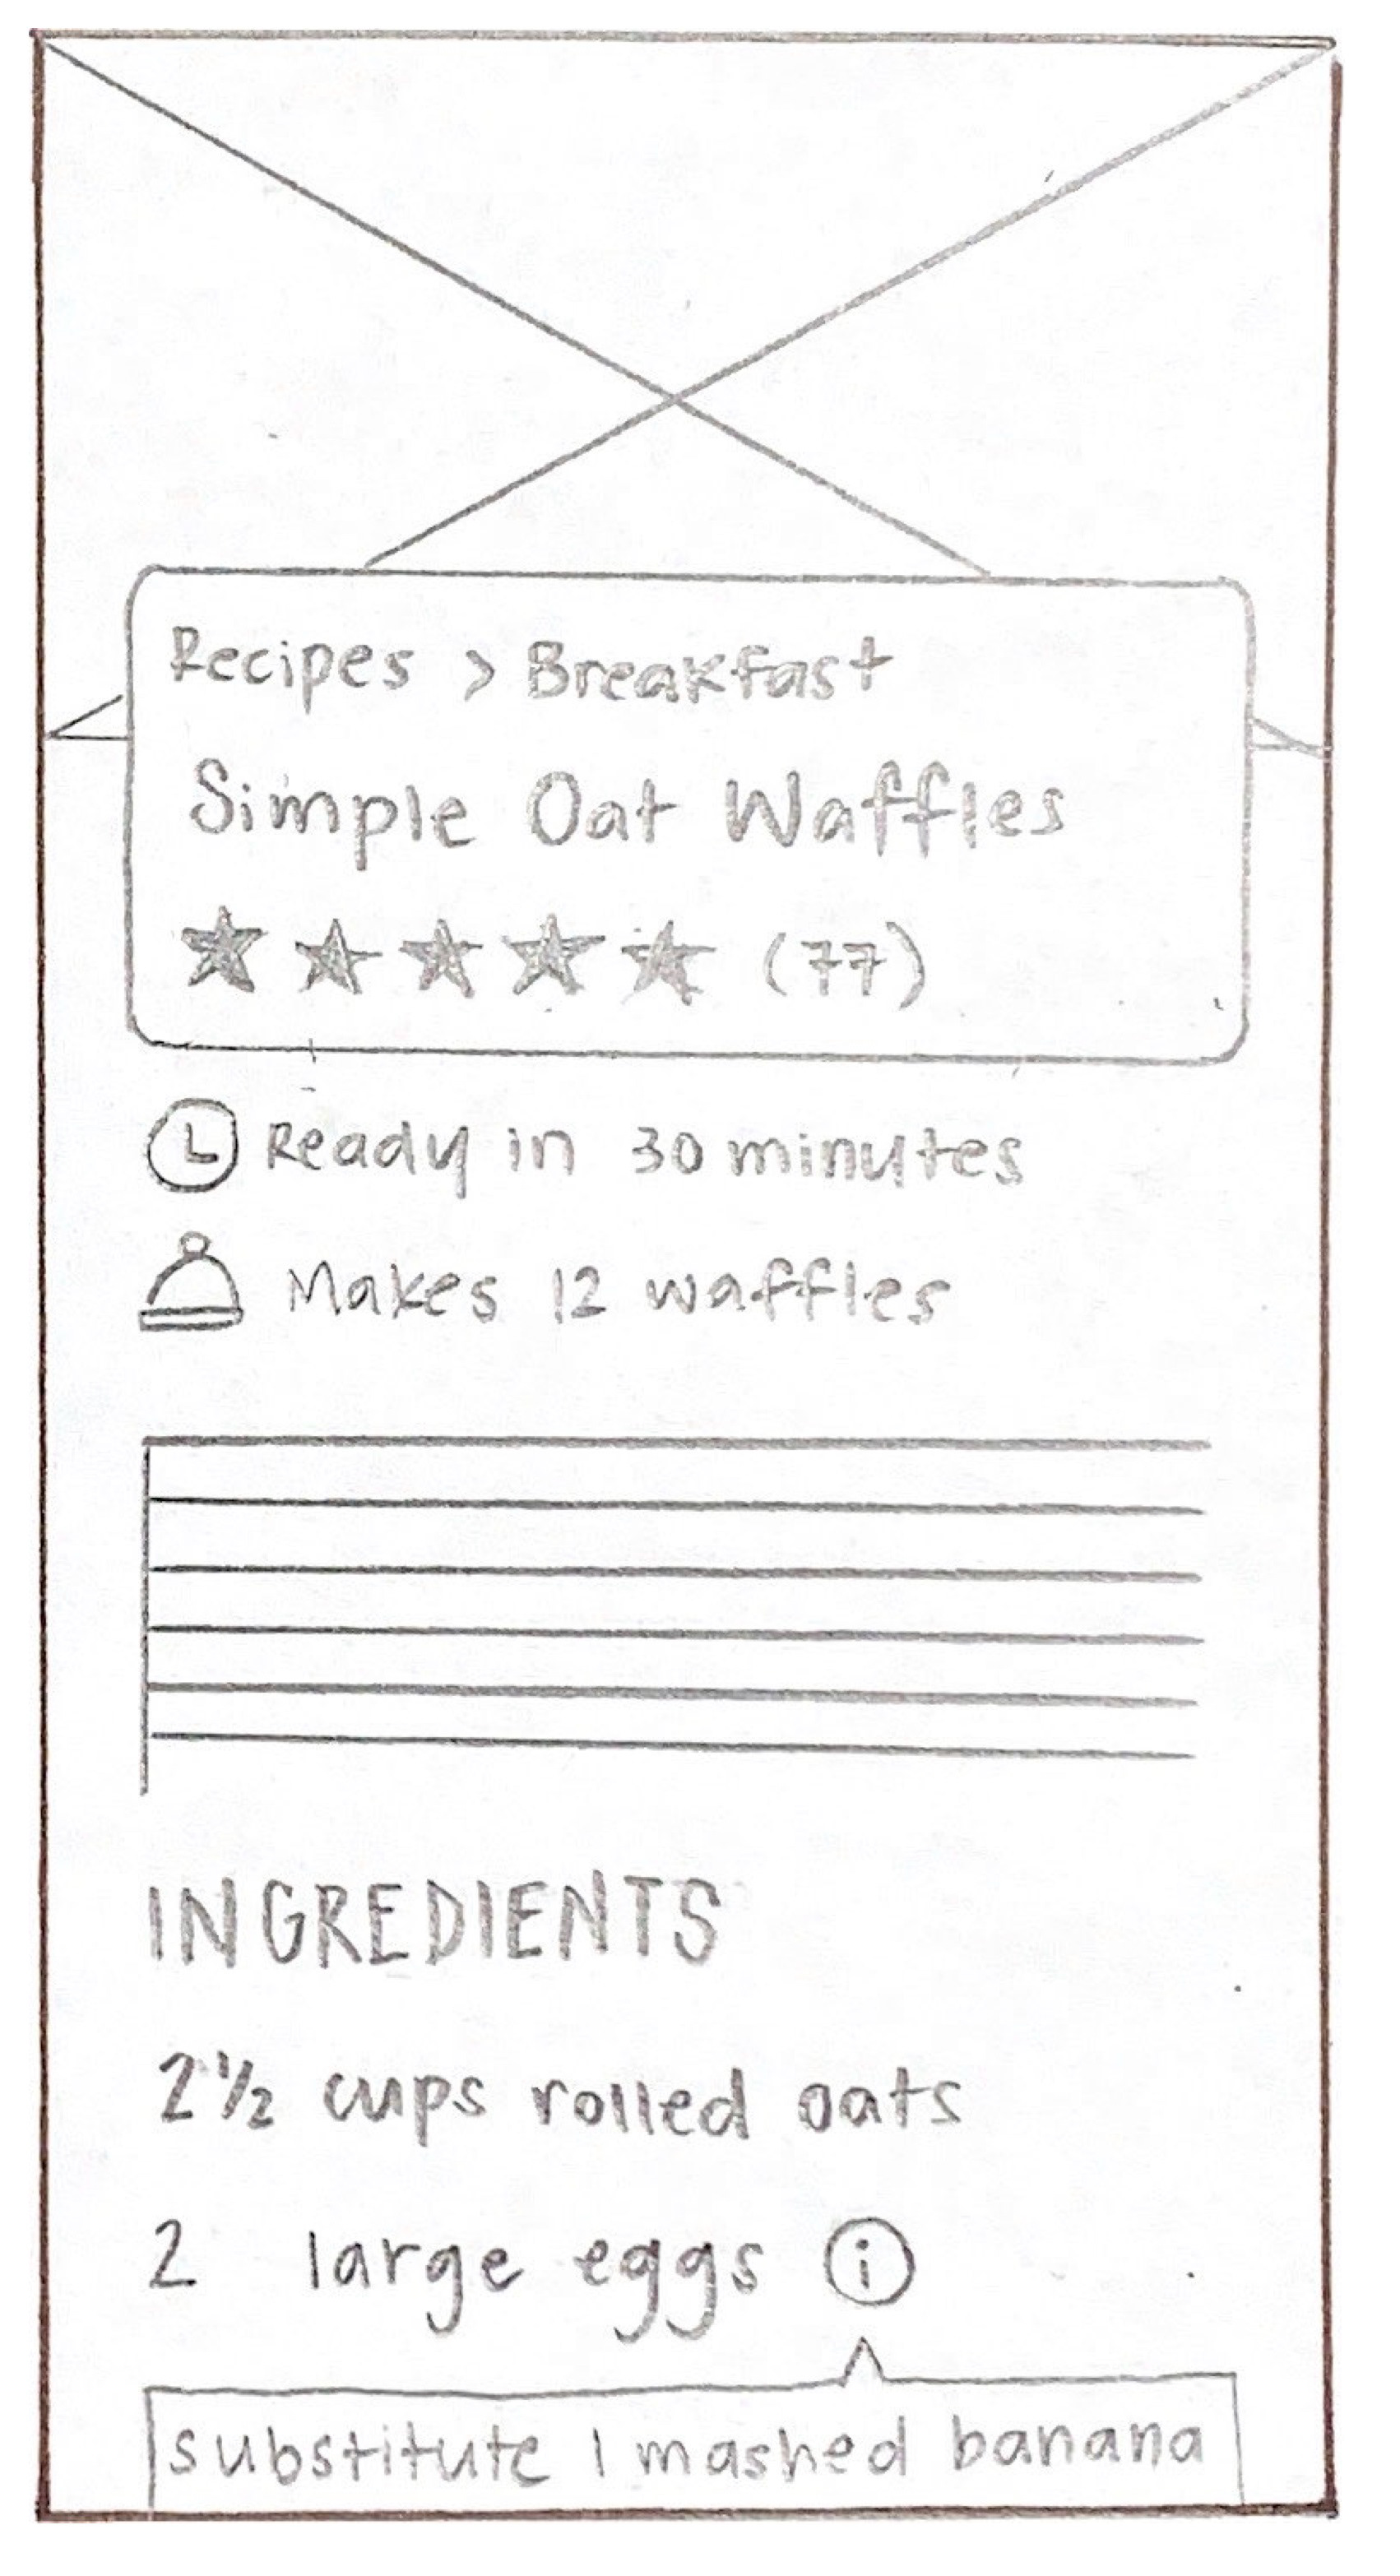 Recipes > Breakfast
Simple Oat Waffles
(77)
Ready in 30 minutes
Makes 12 waffles
INGREDIENTS
2 ½ cups rolled oats
2 large eggs i
substitute 1 mashed banana